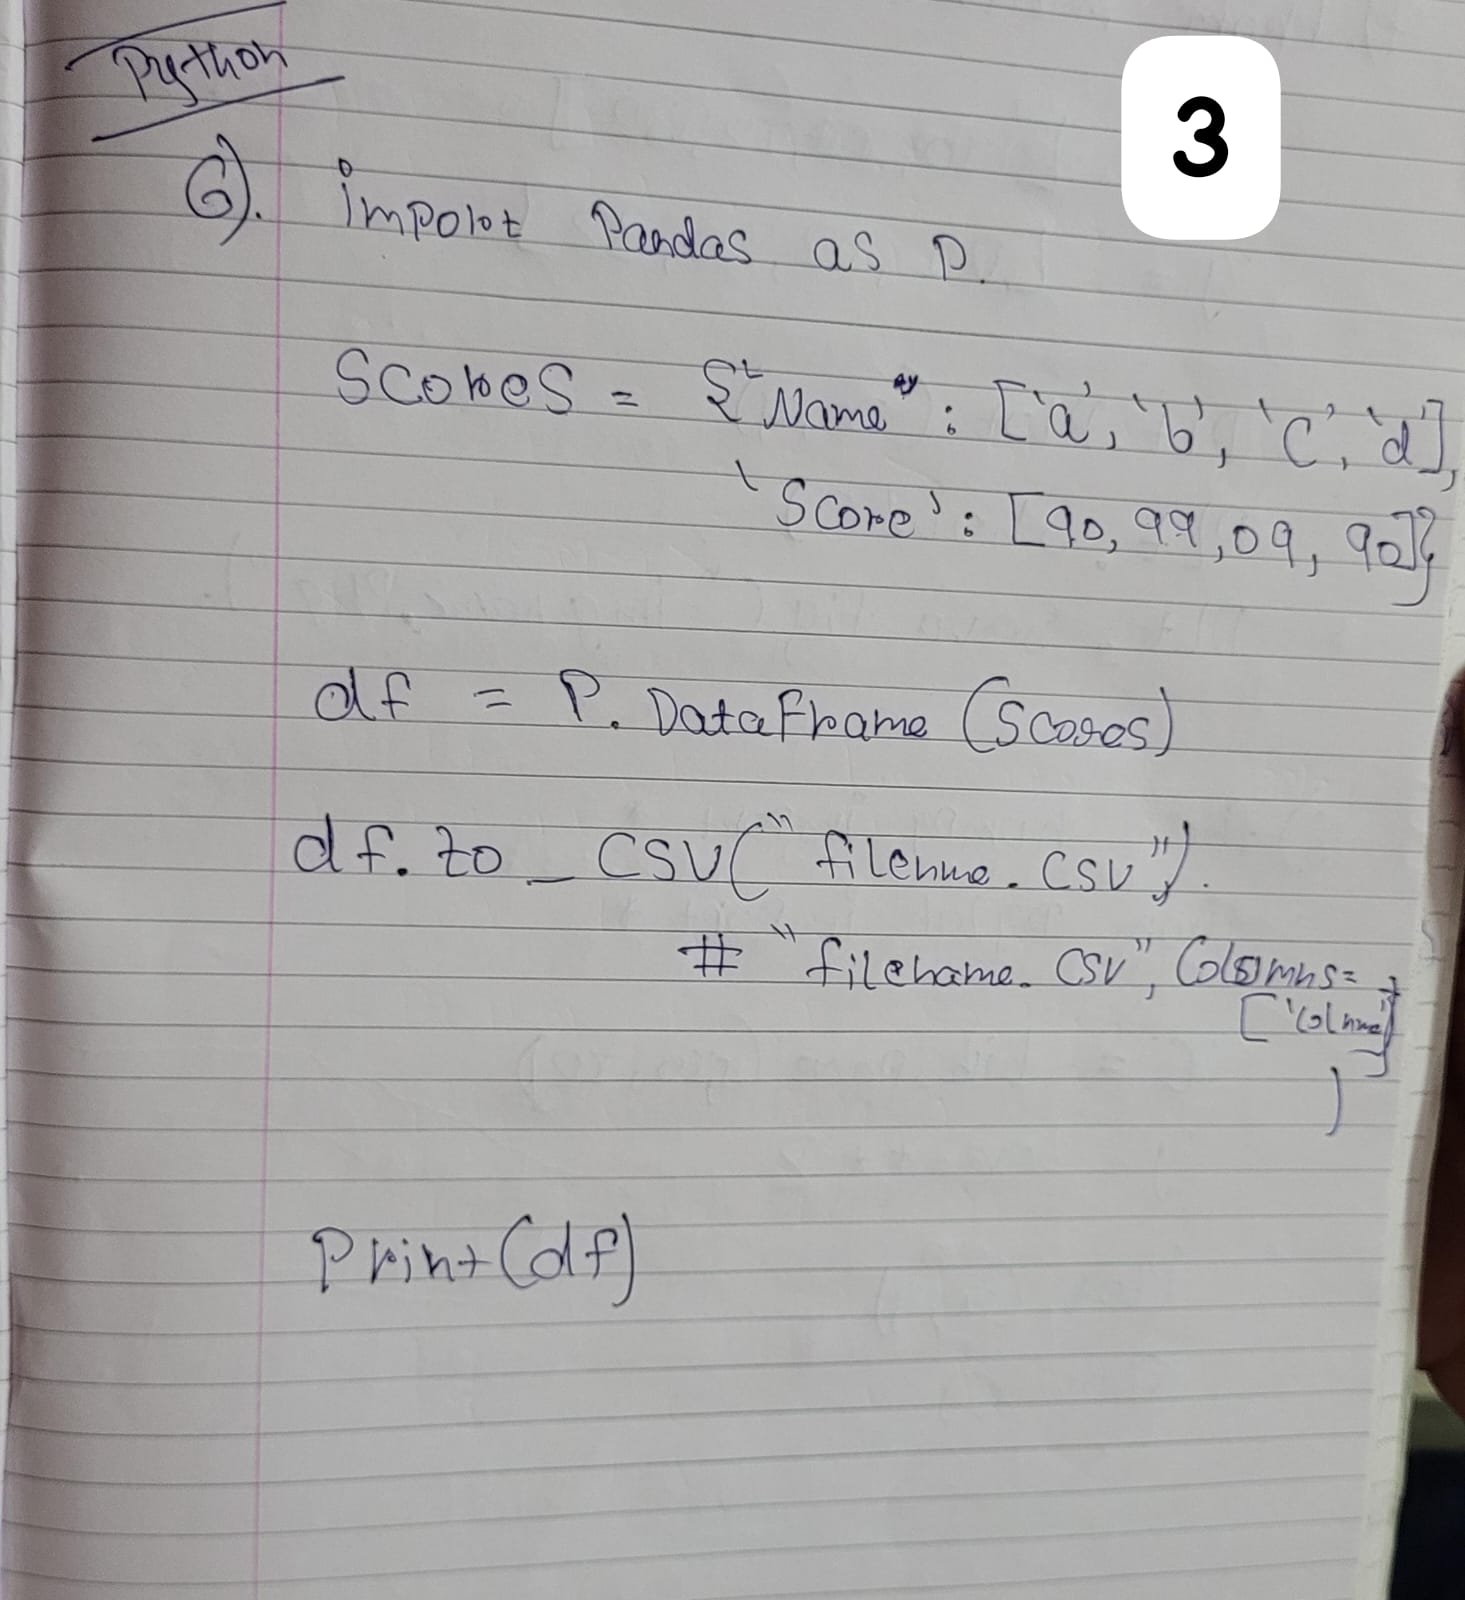 Python
3
6). import Pandas as P.
Scores = {'Name' : ['a', 'b', 'c', 'd'],
'Score' : [90, 99, 09, 90]}
df = P. DataFrame (Scores)
df. to _ CSV("filenme. CSV").
# "filename. CSV", Columns=
['colnme']
)
Print(df)